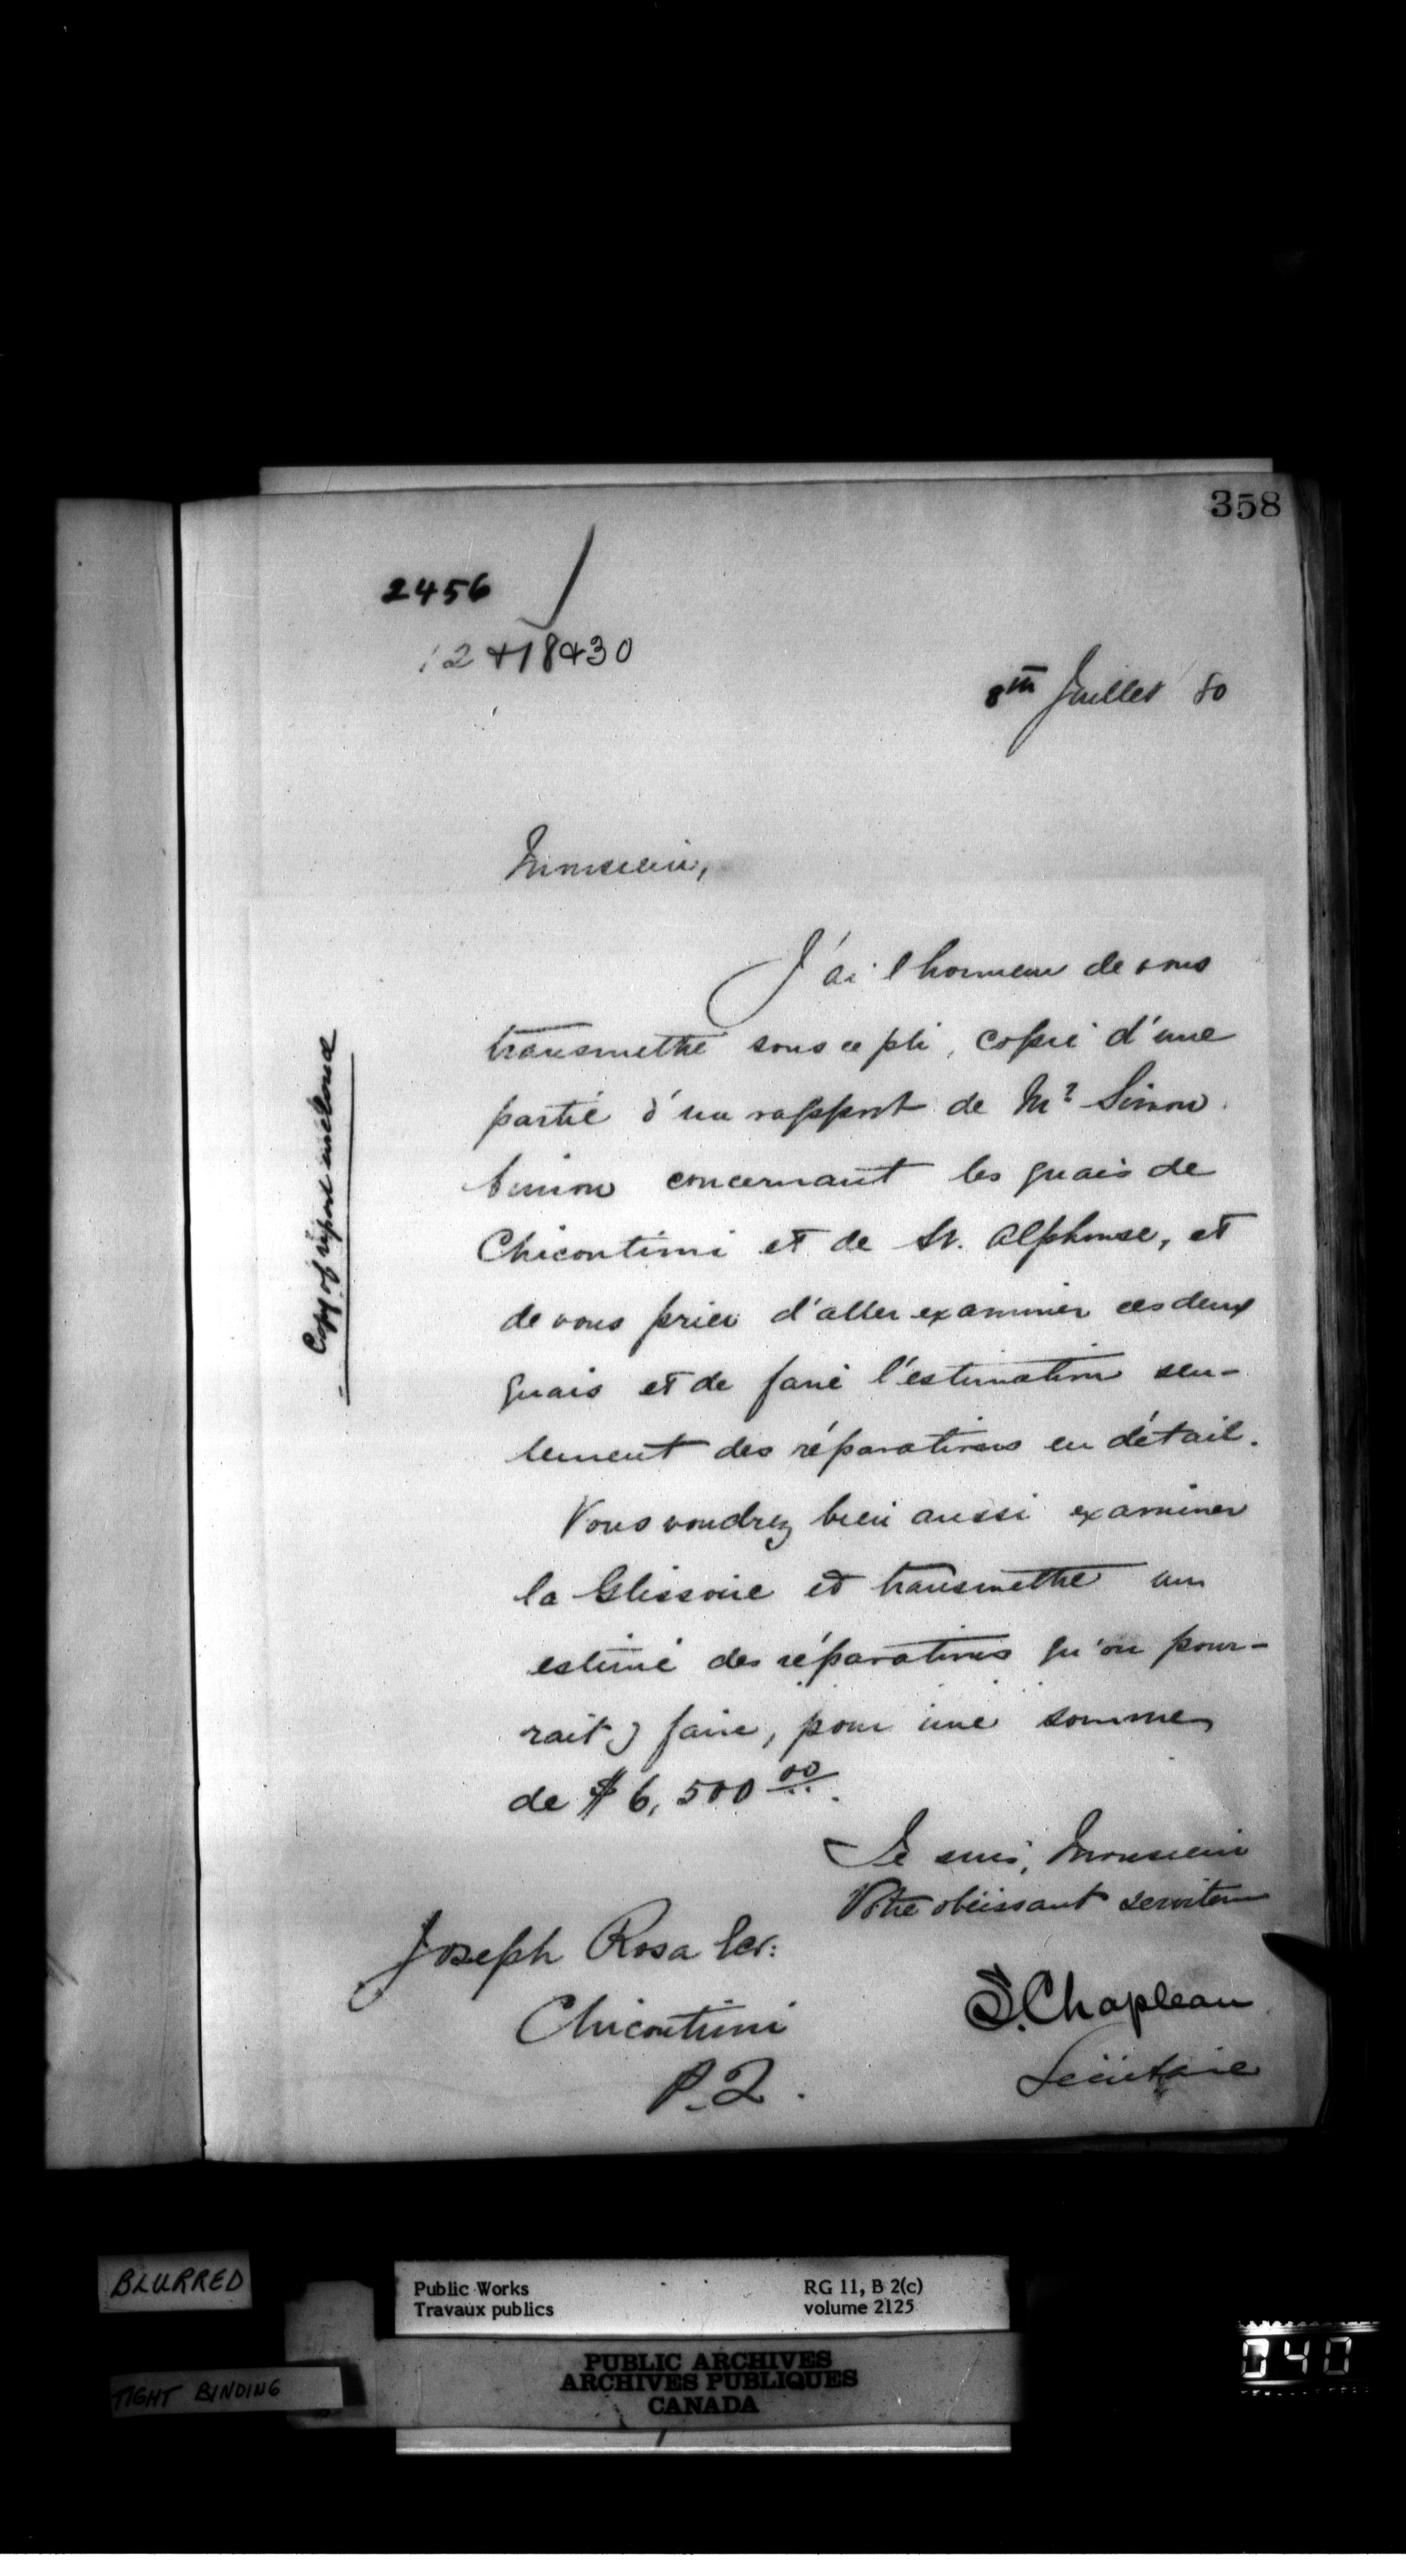 358
2456
12418430
8th Juillet 80
Monsieur,
J'ai l'honneur de vous
transmettre sous ce pli, copie d'une
partie d'un rapport de Mr Simon
concernant les quais de
Chicoutimi et de St. Alphonse, et
de vous prier d'aller examiner ces deux
quais et de faire l'estimation seu-
lement des réparations en détail.
Vous voudrez bien aussi examiner
la Glissoire et transmettre un
estimé des réparations qu'on pour-
rait y faire, pour une somme
de $6,500 00.
Je suis, Monsieur
Votre obéissant serviteur
S. Chapleau
Secrétaire
Joseph Rosa Ecr:
Chicoutimi
P.Q.
Copy of report enclosed
BLURRED
TIGHT BINDING
Public Works
Travaux publics
RG 11, B 2(c)
volume 2125
PUBLIC ARCHIVES
ARCHIVES PUBLIQUES
CANADA
040